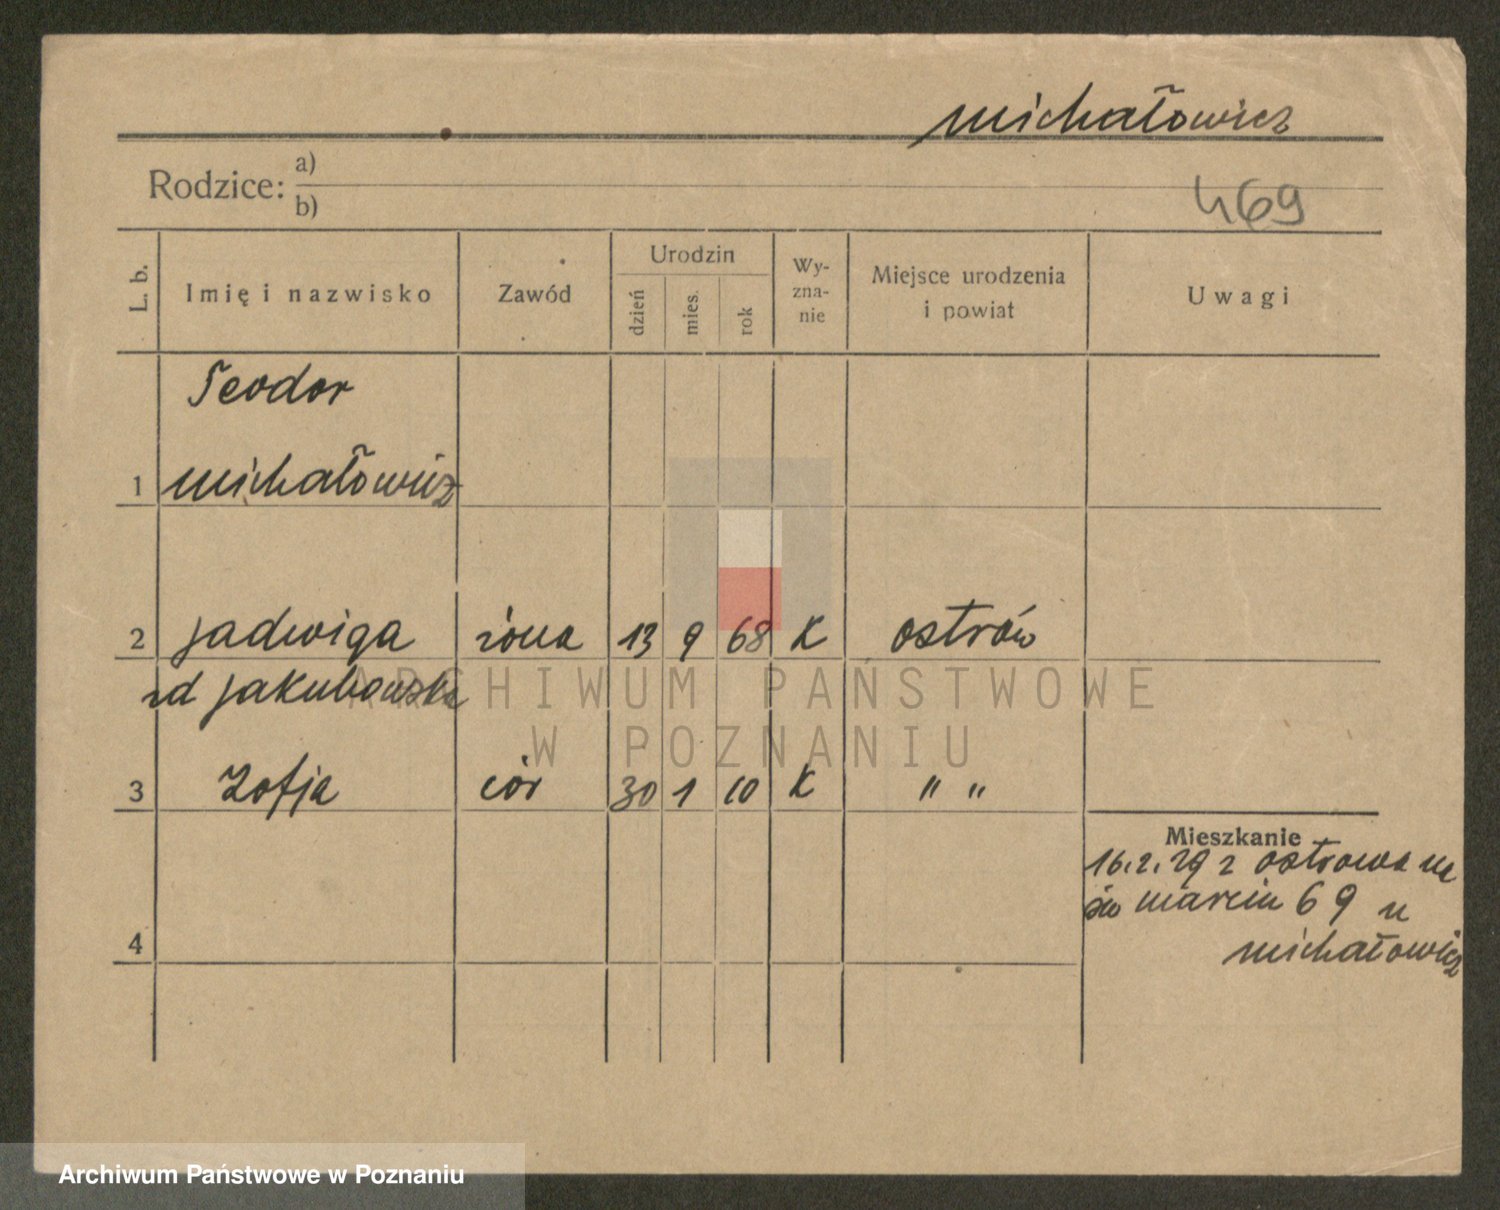 Michałowicz
Rodzice: a)
b)
469
L. b.
Imię i nazwisko
Zawód
Urodzin
dzień
mies.
rok
Wy-
zna-
nie
Miejsce urodzenia
i powiat
Uwagi
Teodor
1 Michałowicz
2 Jadwiga żona 13 9 68 K Ostrów
zd Jakubowska
3 Zofja cór 30 1 10 K " "
Mieszkanie
16.2.29 z Ostrowa na
św Marcin 69 u
Michałowicz
4
ARCHIWUM PAŃSTWOWE
W POZNANIU
Archiwum Państwowe w Poznaniu